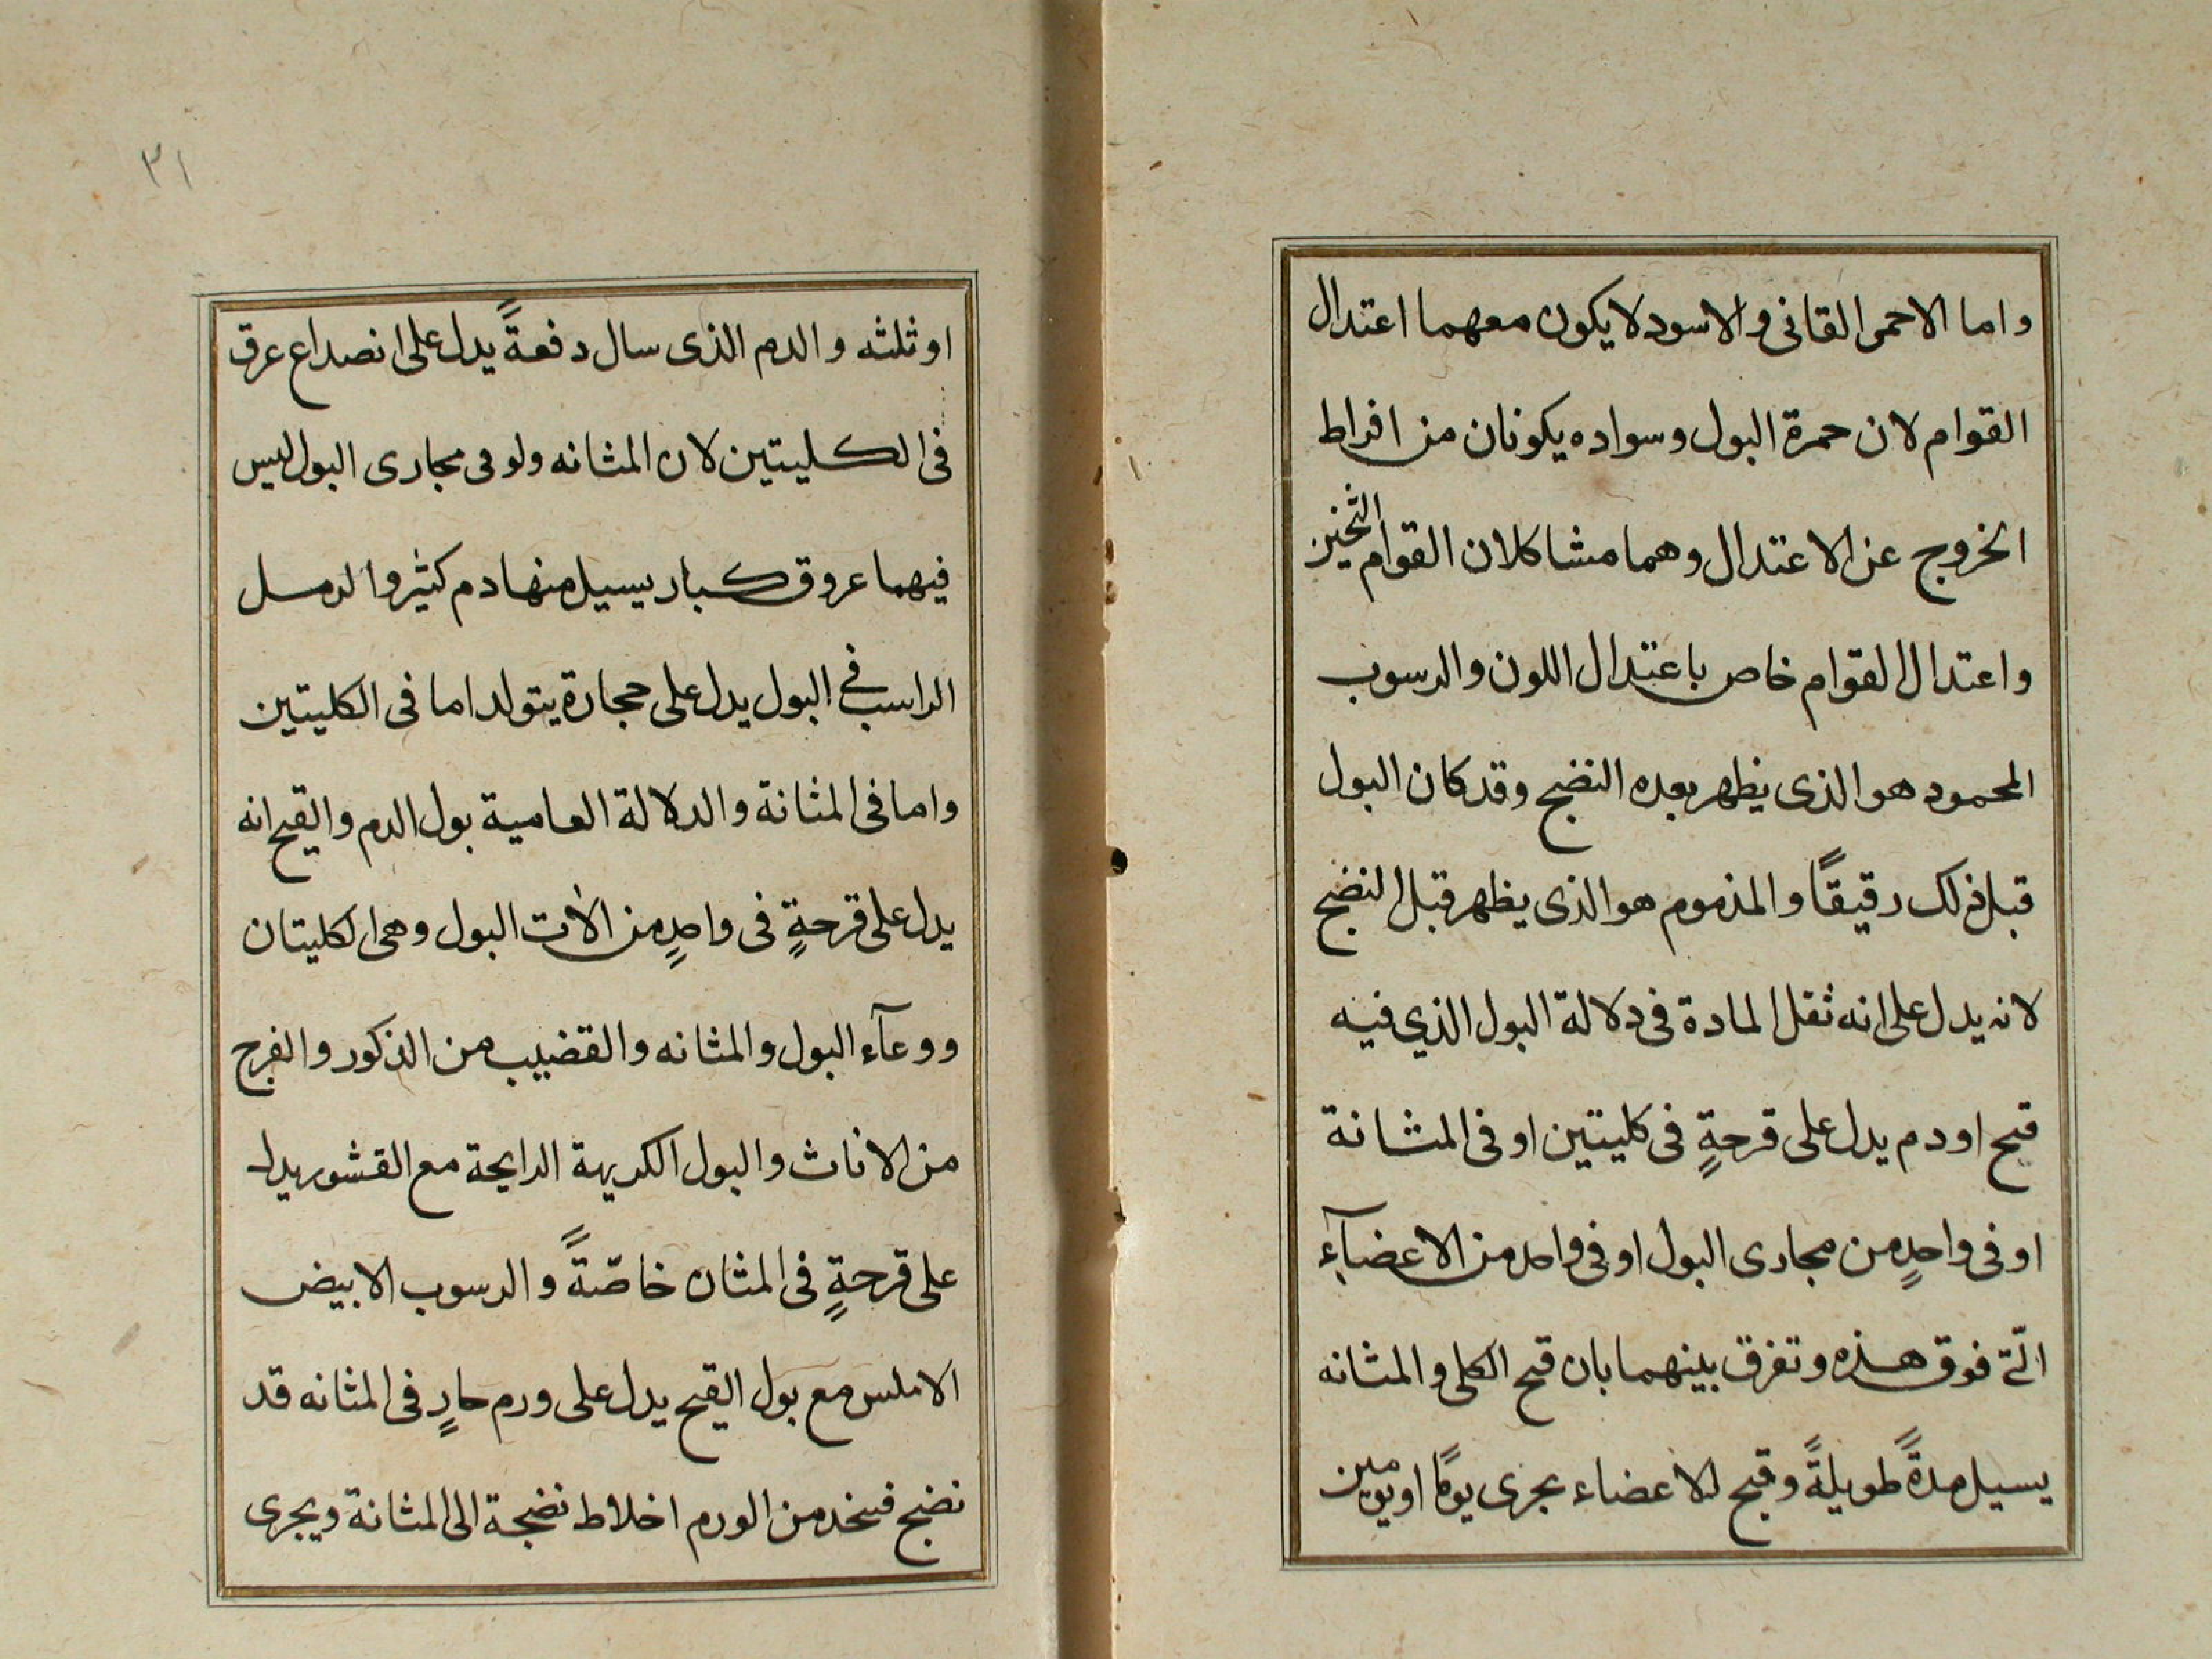 واما الاحمر القانى والاسود لا يكون معهما اعتدال
القوام لان حمرة البول وسواده يكونان من افراط
الخروج عن الاعتدال وهما مشاكلان القوام الثخين
واعتدال القوام خاص باعتدال اللون والرسوب
المحمود هو الذى يظهر بعده النضج وقد كان البول
قبل ذلك رقيقًا والمذموم هو الذى يظهر قبل النضج
لانه يدل على انه ثقل المادة فى دلالة البول الذي فيه
قيح او دم يدل على قرحةٍ فى كليتين او فى المثانة
او فى واحدٍ من مجارى البول او فى واحد من الاعضآء
الّتى فوق هذه وتفرق بينهما بان قيح الكلى والمثانه
يسيل مدةً طويلةً وقيح الاعضاء يجرى يومًا او يومين
٣١
او ثلثه والدم الذى سال دفعةً يدل على انصداع عرق
فى الكليتين لان المثانه ولو فى مجارى البول ليس
فيهما عروق كبار يسيل منها دم كثير والرمل
الراسب فى البول يدل على حجارة يتولد اما فى الكليتين
واما فى المثانة والدلالة العامية بول الدم والقيح انه
يدل على قرحةٍ فى واحدٍ من الات البول وهى الكليتان
ووعآء البول والمثانه والقضيب من الذكور والفرج
من الاناث والبول الكريهة الرايحة مع القشور يدل
على قرحةٍ فى المثان خاصّةً والرسوب الابيض
الاملس مع بول القيح يدل على ورم حارٍ فى المثانه قد
نضج من الورم اخلاط نضجة الى المثانة ويجرى